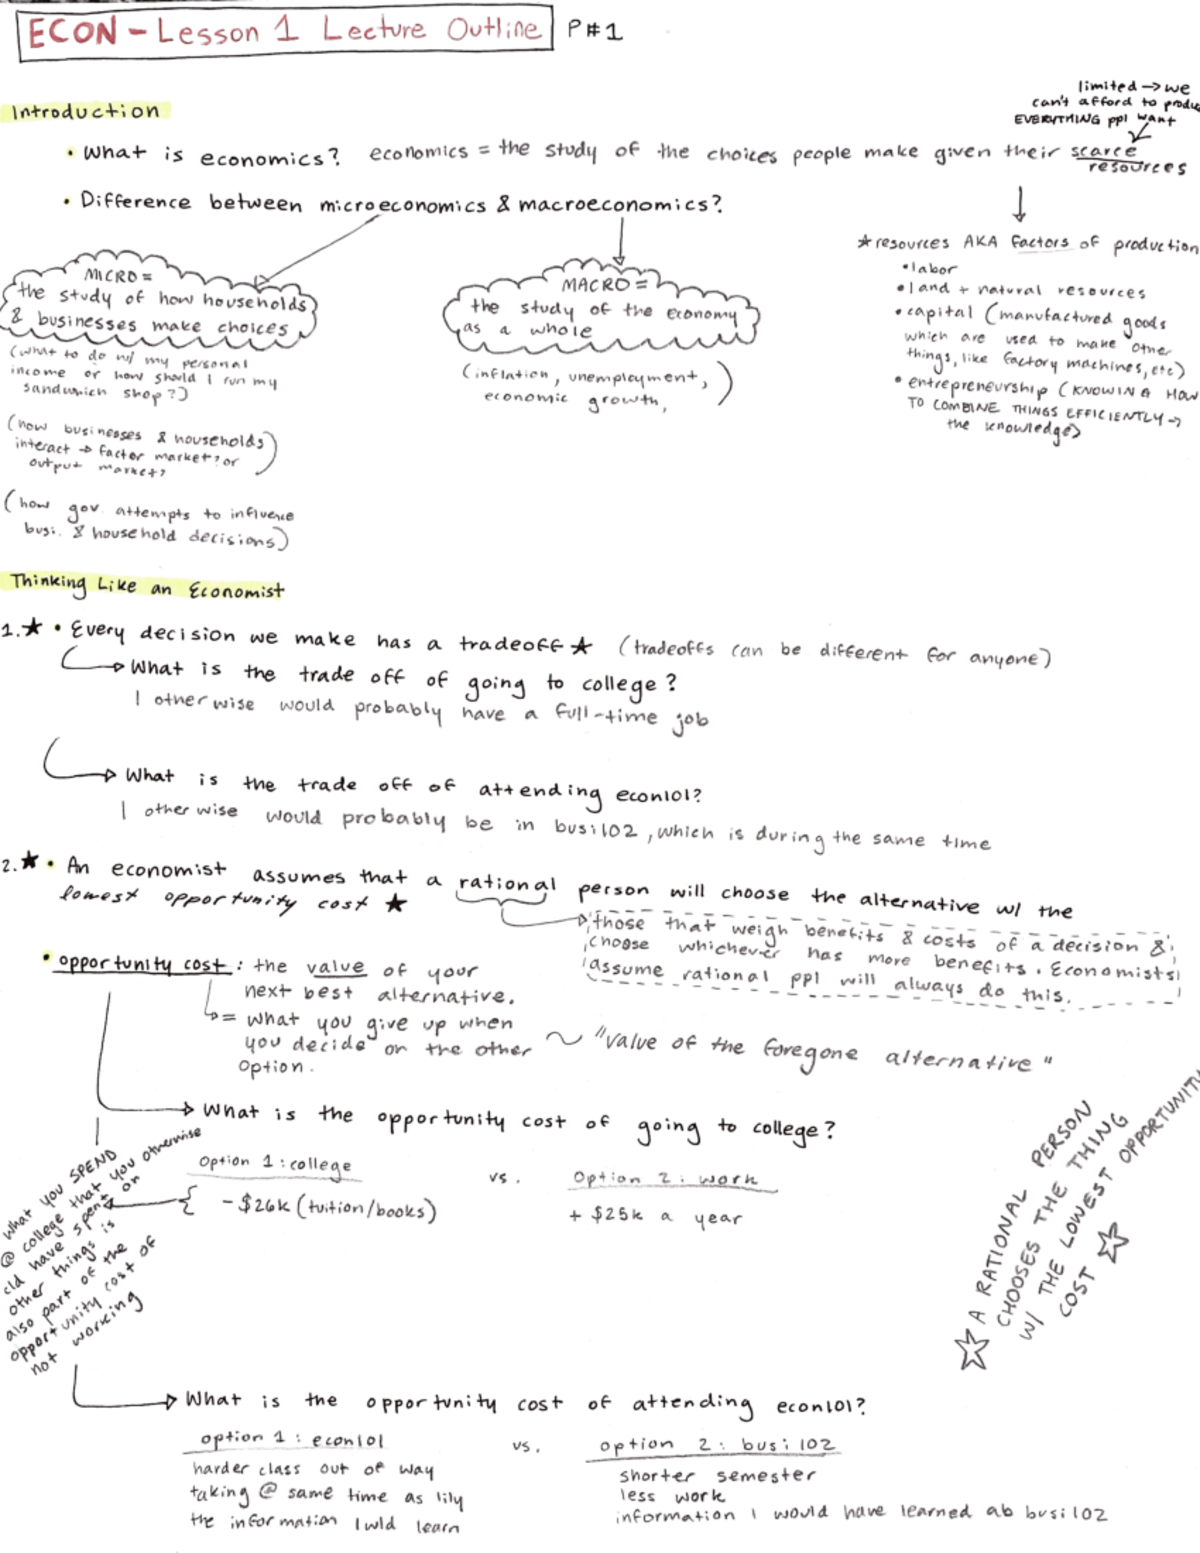 ECON - Lesson 1 Lecture Outline P#1
limited → we
can't afford to produ
EVERYTHING ppl want
Introduction
• What is economics? economics = the study of the choices people make given their scarce
resources
• Difference between microeconomics & macroeconomics?
★ resources AKA factors of production
• labor
• land + natural resources
• capital (manufactured goods
which are used to make other
things, like factory machines, etc)
• entrepreneurship (KNOWING HOW
TO COMBINE THINGS EFFICIENTLY →
the knowledge)
MICRO =
the study of how households
& businesses make choices
(what to do w/ my personal
income or how should I run my
sandwich shop?)
(how businesses & households
interact → factor market? or
output market?
(how gov. attempts to influence
busi. & household decisions)
MACRO =
the study of the economy
as a whole
(inflation, unemployment,
economic growth, )
Thinking Like an Economist
1. ★ • Every decision we make has a tradeoff ★ (tradeoffs can be different for anyone)
What is the trade off of going to college?
I otherwise would probably have a full-time job
What is the trade off of attending econ101?
I otherwise would probably be in busi102, which is during the same time
2. ★ • An economist assumes that a rational person will choose the alternative w/ the
lowest opportunity cost ★
those that weigh benefits & costs of a decision &
choose whichever has more benefits. Economists
assume rational ppl will always do this.
• opportunity cost: the value of your
next best alternative.
= what you give up when
you decide on the other
option.
~ "value of the foregone alternative"
What is the opportunity cost of going to college?
Option 1: college vs. Option 2: work
- $26k (tuition/books) + $25k a year
what you SPEND
@ college that you otherwise
cld have spent on
other things is
also part of the
opportunity cost of
not working
☆ A RATIONAL PERSON
CHOOSES THE THING
W/ THE LOWEST OPPORTUNITY
COST ☆
What is the opportunity cost of attending econ101?
option 1: econ101 vs. option 2: busi102
harder class out of way
taking @ same time as lily
the information I wld learn
shorter semester
less work
information I would have learned ab busi102